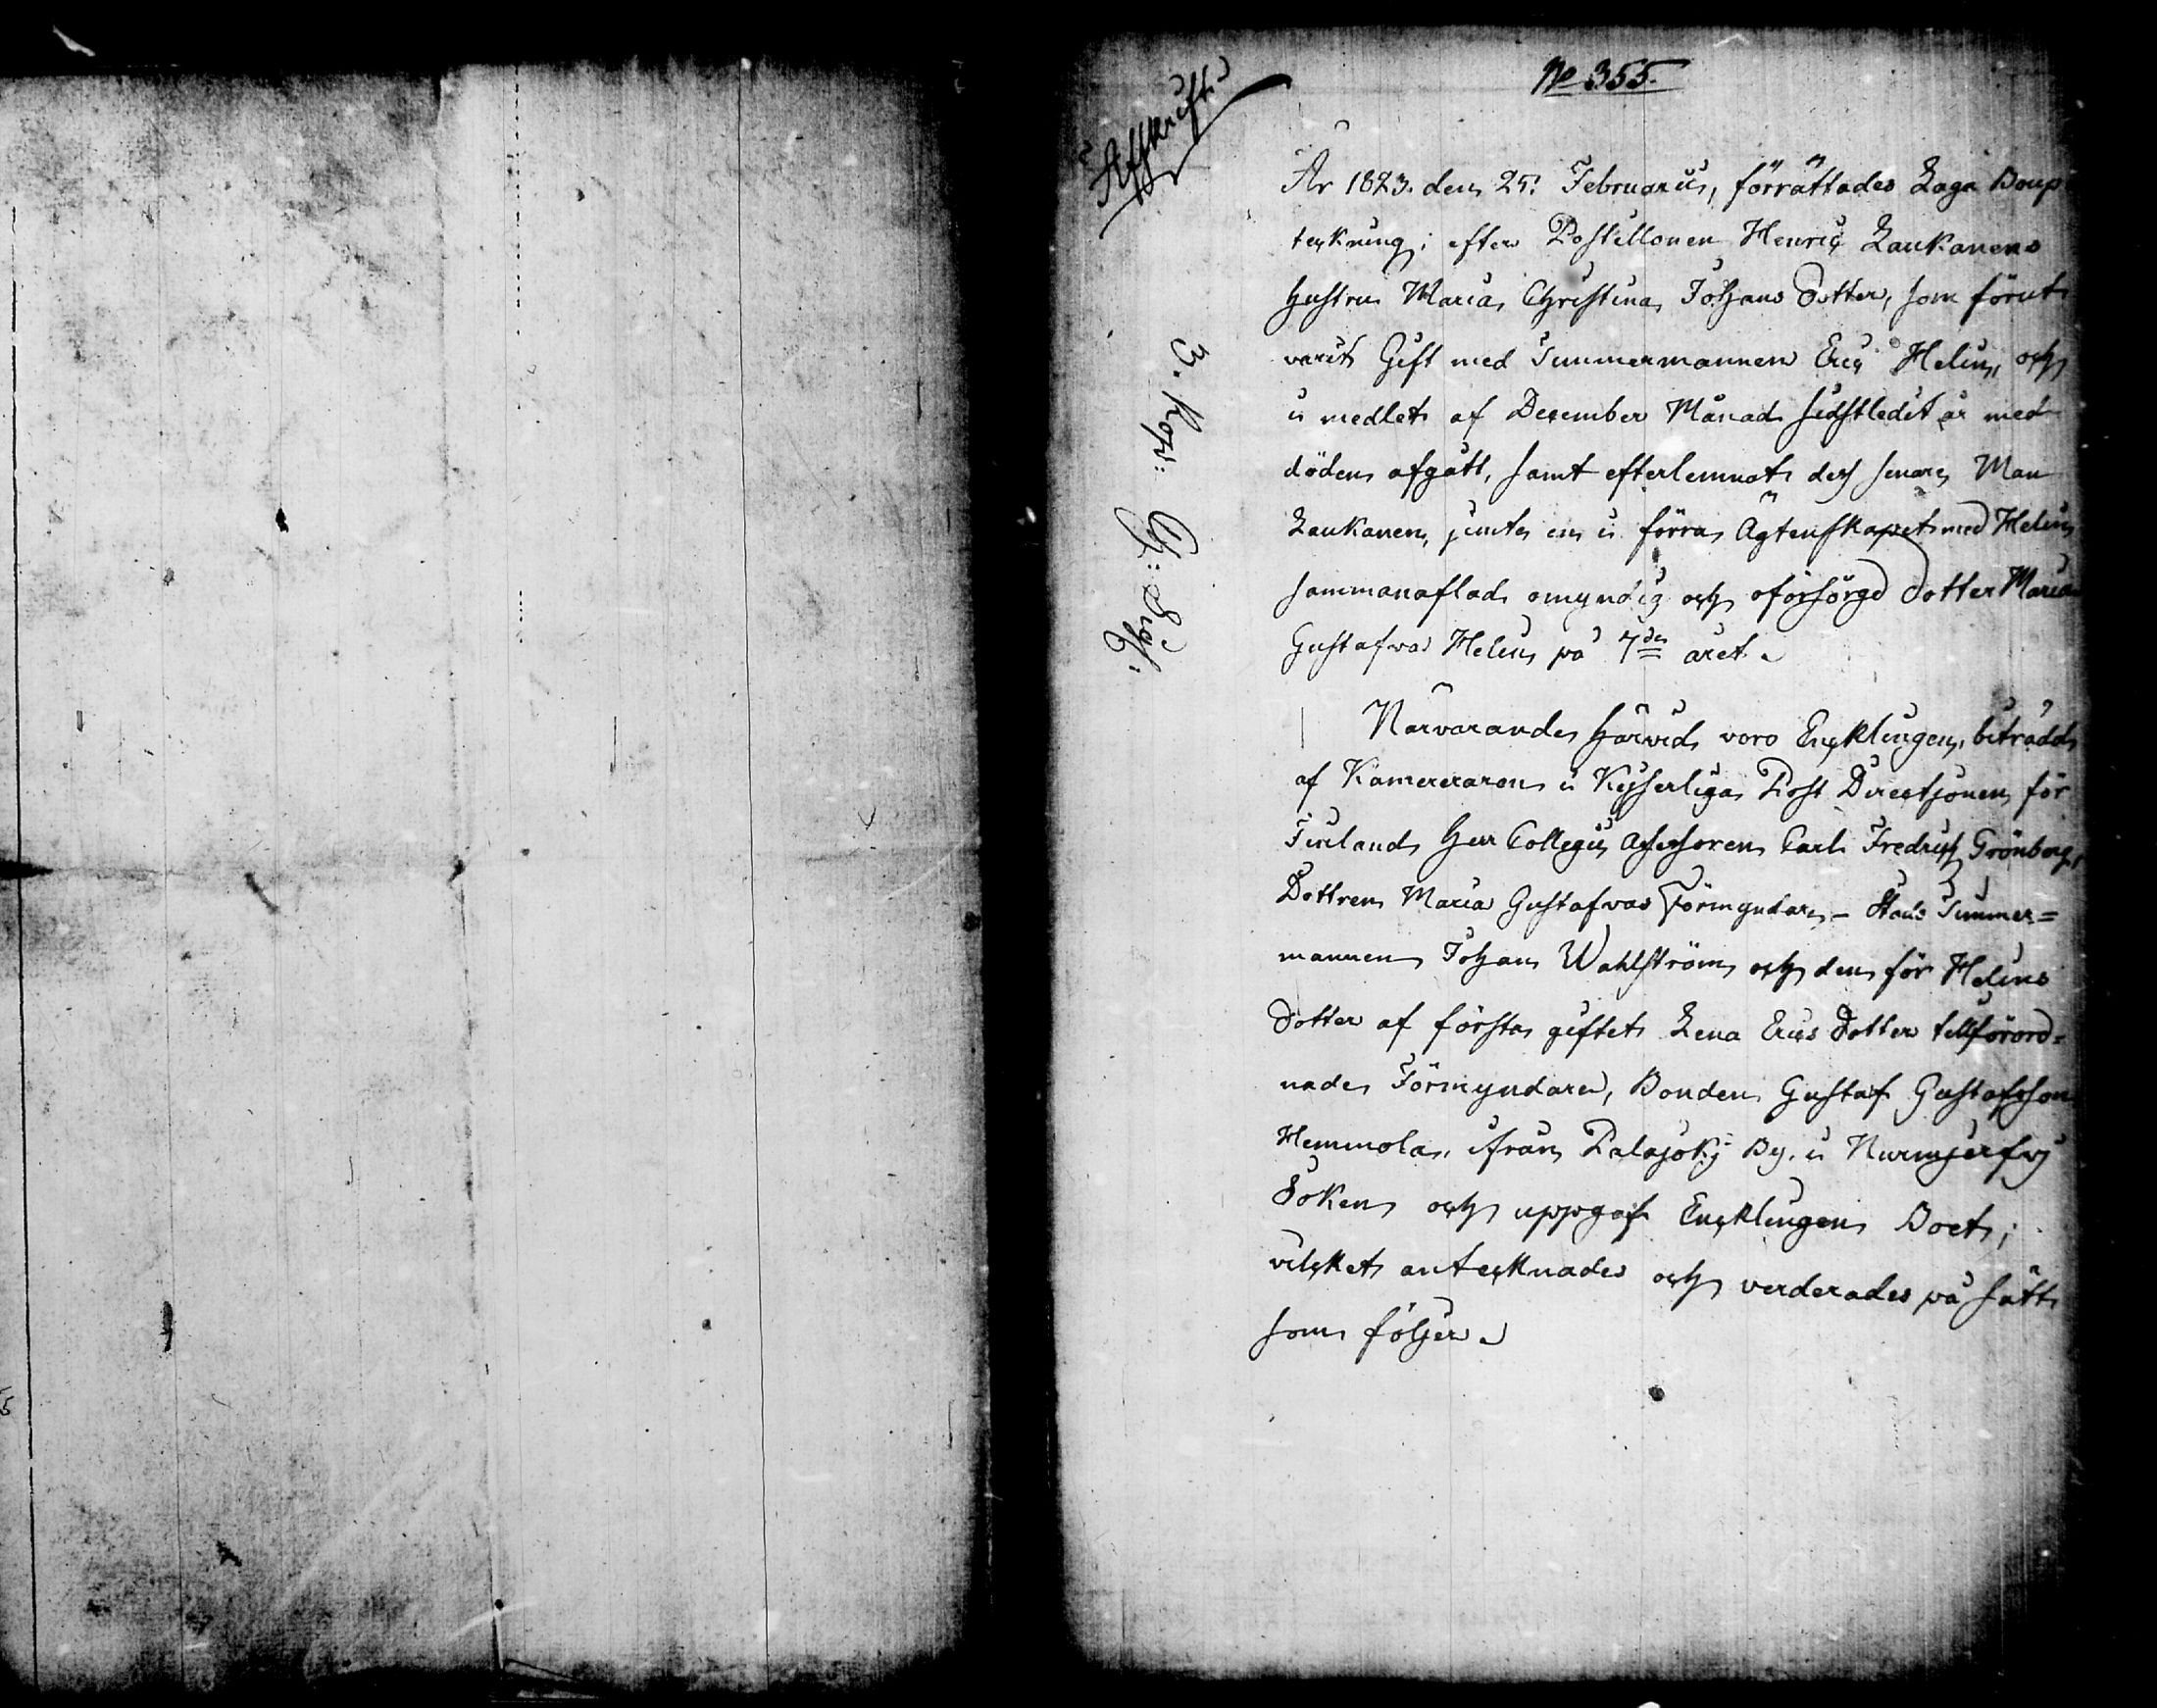 No 355.
Afskrift
År 1823. den 25: Februarii, förrättades Laga Boup
teckning; efter Postillonen Henric Laukanens
hustru Maria Christina Johans Dotter, som förut
varit Gift med Timmermannen Eric Helin, och
i medlet af December Månad sidstledit år med
döden afgått, samt efterlemnat dess senare Man
Laukanen, jemte en i förra Ägtenskapet med Helin
sammanaflad omyndig och oförsörgd dotter Maria
Gustafva Helin på 7de året.
Närvarande härvid voro Encklingen, biträdd
af Kamereraren i Kejserliga Post Directjonen för
Finland Herr Collegii Assessoren Carl Fredrich Grönberg,
Dottren Maria Gustafvas Förmyndare, - Stads Timmer=
mannen Johan Wahlström och den för Helins
dotter af första giftet Lena Erics Dotter tillförord=
nade Förmyndare, Bonden Gustaf Gustafsson
Hemmola, ifrån Palajoki By, i Nurmjerfvj
Soken och uppgaf Encklingen Boet;
vilcket antecknades och verderades på sätt
som följer.
3. Kop: G: Sigf.
5